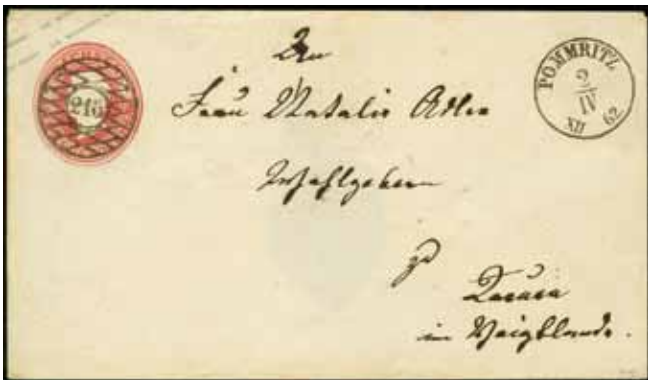 216
POMMRITZ
2
IV
XII 62
An
Frau Natalie Adler
Wohlgeboren
zu
im Voigtlande.